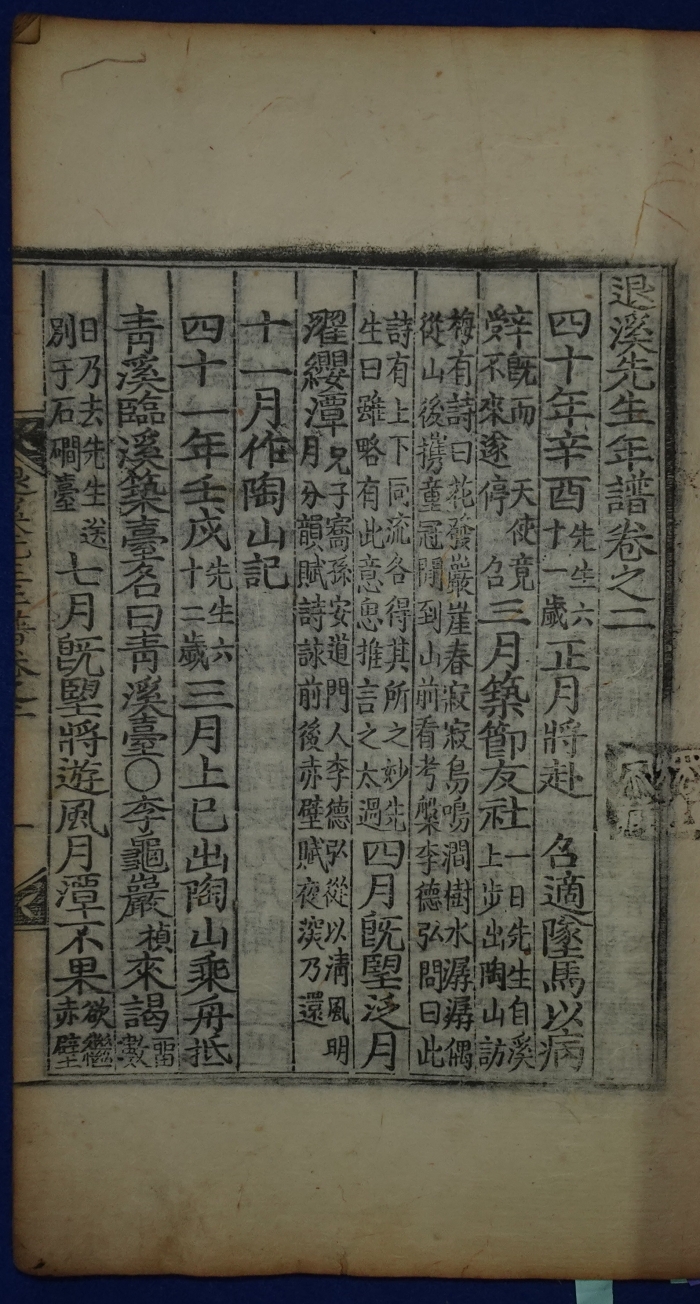 退溪先生年譜卷之二
四十年辛酉先生六十一歲正月將赴 召適墜馬以病
辤旣而 天使竟不來遂停 召三月築節友社一日先生自溪上步出陶山訪
梅有詩曰花發巖崖春寂寂鳥鳴澗樹水潺潺偶從山後攜童冠閒到山前看考槃李德弘問曰此
詩有上下同流各得其所之妙先生曰雖略有此意思推言之太過四月旣望泛月
濯纓潭兄子㝯孫安道門人李德弘從以淸風明月分韻賦詩詠前後赤壁賦夜深乃還
十一月作陶山記
四十一年壬戌先生六十二歲三月上巳出陶山乘舟抵
靑溪臨溪築臺名曰靑溪臺○李龜巖楨來謁留數
日乃去先生送別于石磵臺七月旣望將遊風月潭不果欲繼赤壁